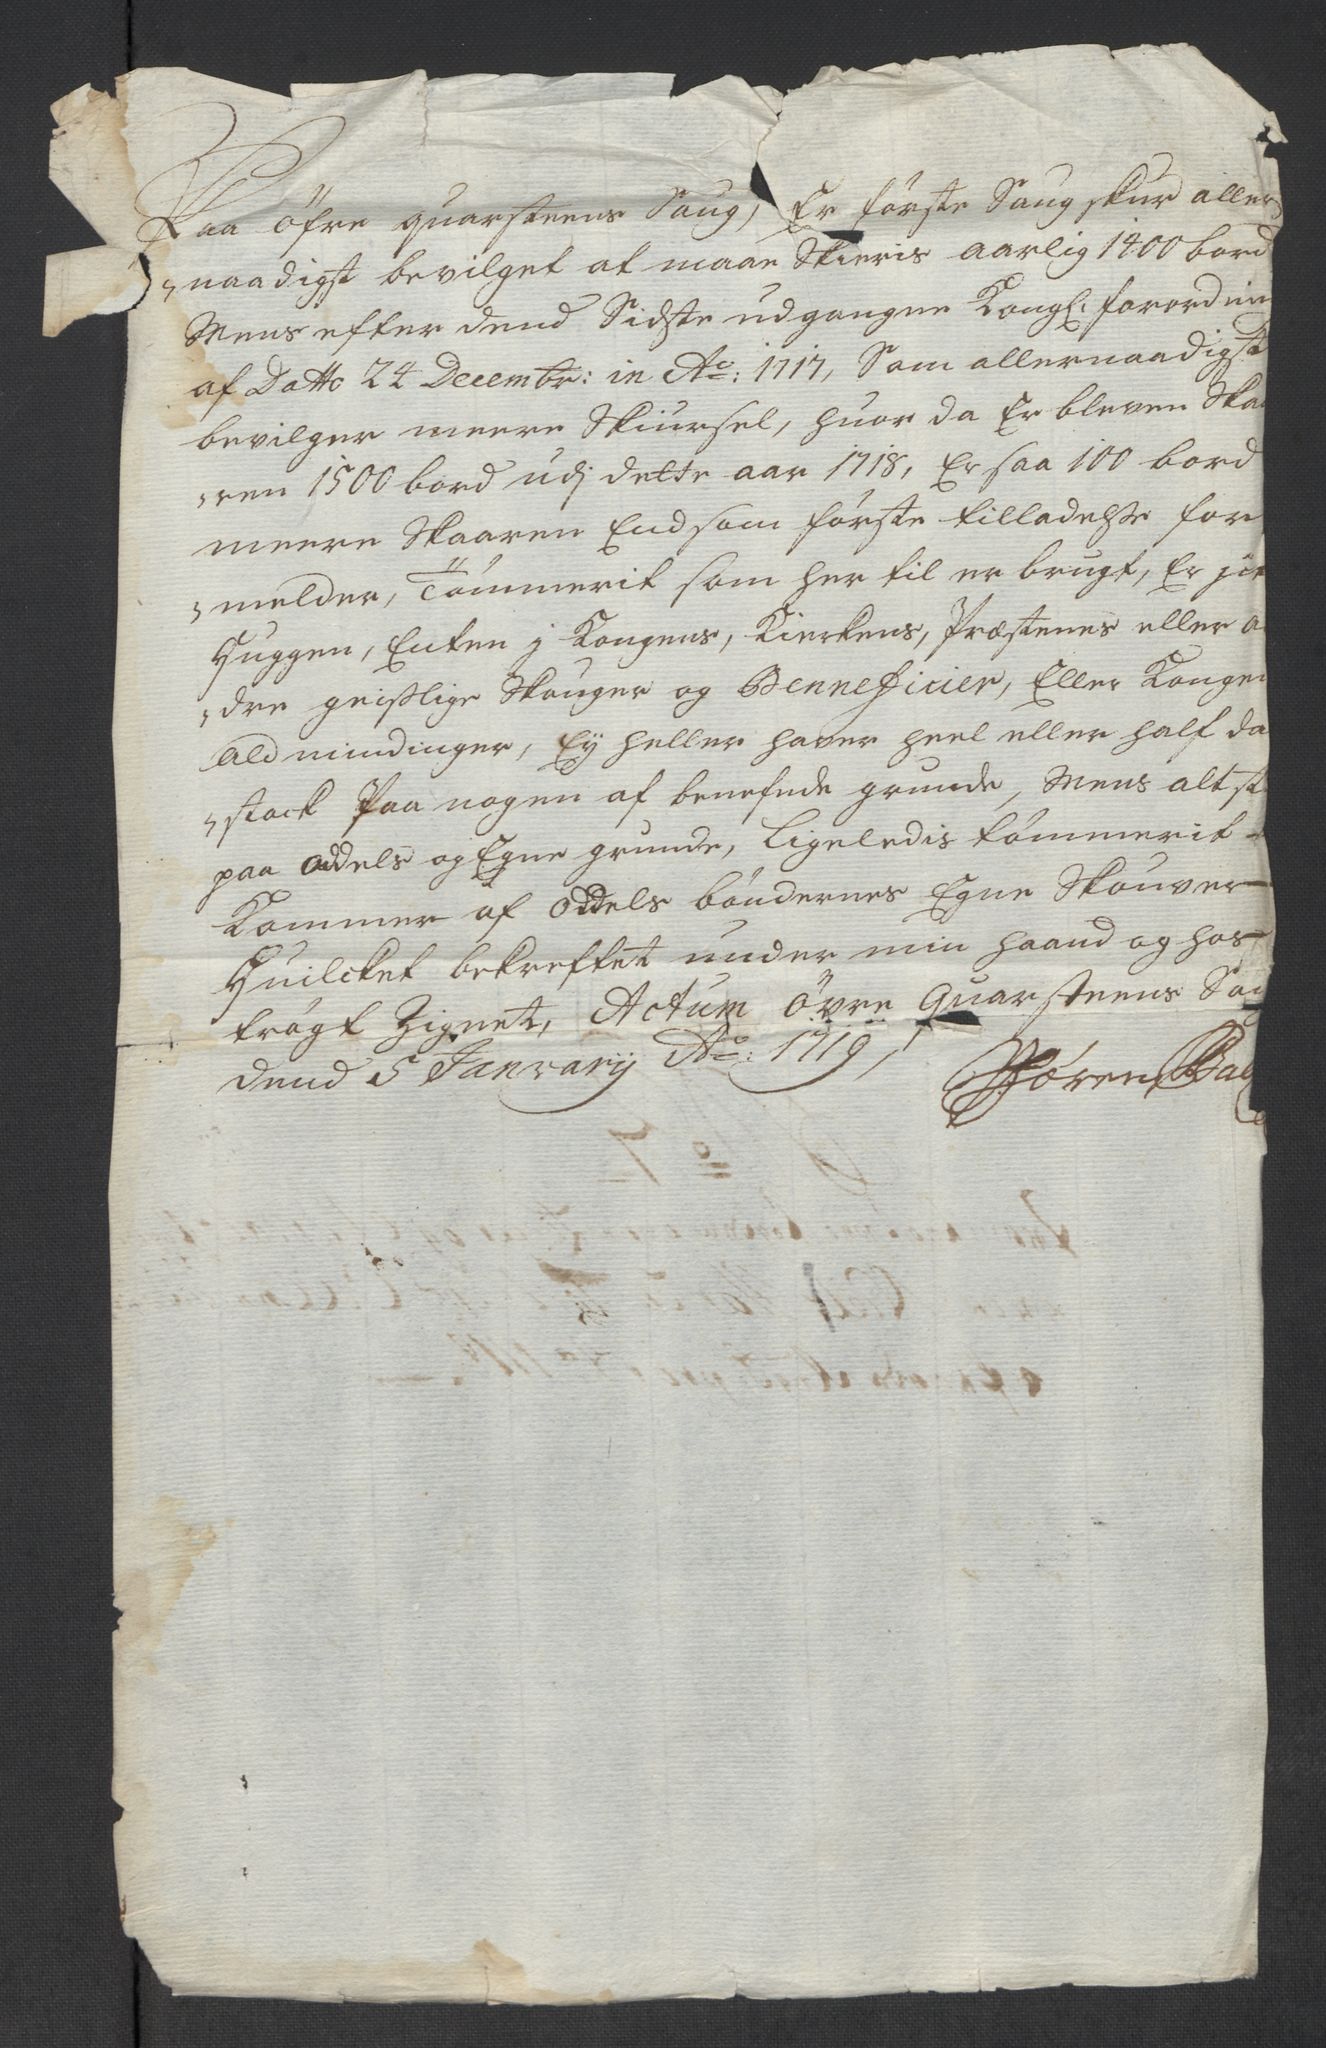 Paa öfre quarsteens Saug, Er förste Saug skur aller
naadigst bevilget at maae Skieris aarlig 1400 bord
Mens efter dend Sidste udgangne Kongl: forordnin
af Datto 24 Decembr: in Ao: 1717, Som allernaadigst
bevilger meere Skiursel, huor da Er bleven Skaa
ren 1500 bord udj dette aar 1718, Er saa 100 bord
meere Skaaren End som förste tilladelse for
melder, Tömmerit som her til er brugt, Er j
Huggen, Enten j Kongens, Kierkens, Præstenes eller a
dre geistlige Skouger og Benneficier, Eller Kongen
Ald mindinger, Eÿ heller haver heel eller half da
stock Paa nogen af benefnde grunde, Mens alt st
paa oddels og Egne grunde, Ligeledis tömmerit
Kommer af Oddels böndernes Egne Skouver
Huilcket bekreftet under min haand og hos
trögt Zignet, Actum Övre Quarsteens Sau
dend 5 Janrarÿ Ao: 1719,
Sören Bag